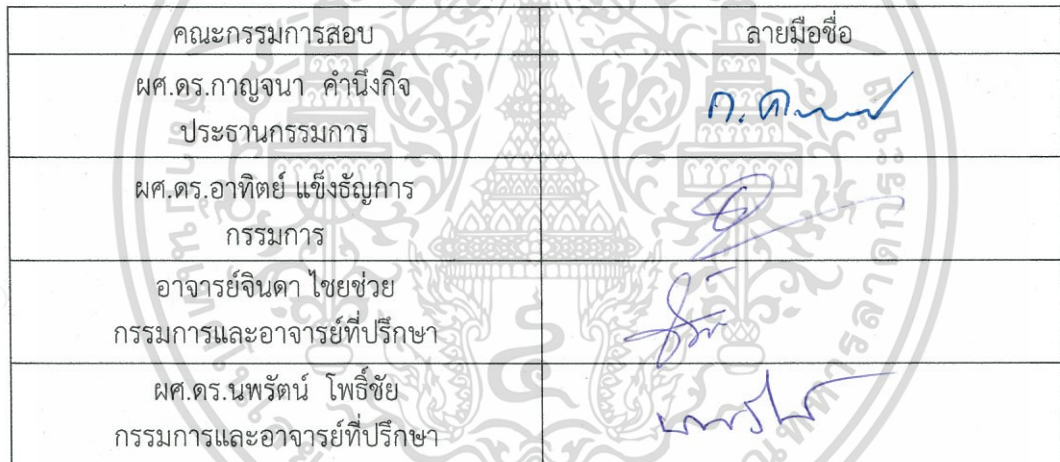 คณะกรรมการสอบ ลายมือชื่อ
ผศ.ดร.กาญจนา คำนึงกิจ
ประธานกรรมการ
ผศ.ดร.อาทิตย์ แข็งธัญการ
กรรมการ
อาจารย์จินดา ไชยช่วย
กรรมการและอาจารย์ที่ปรึกษา
ผศ.ดร.นพรัตน์ โพธิ์ชัย
กรรมการและอาจารย์ที่ปรึกษา